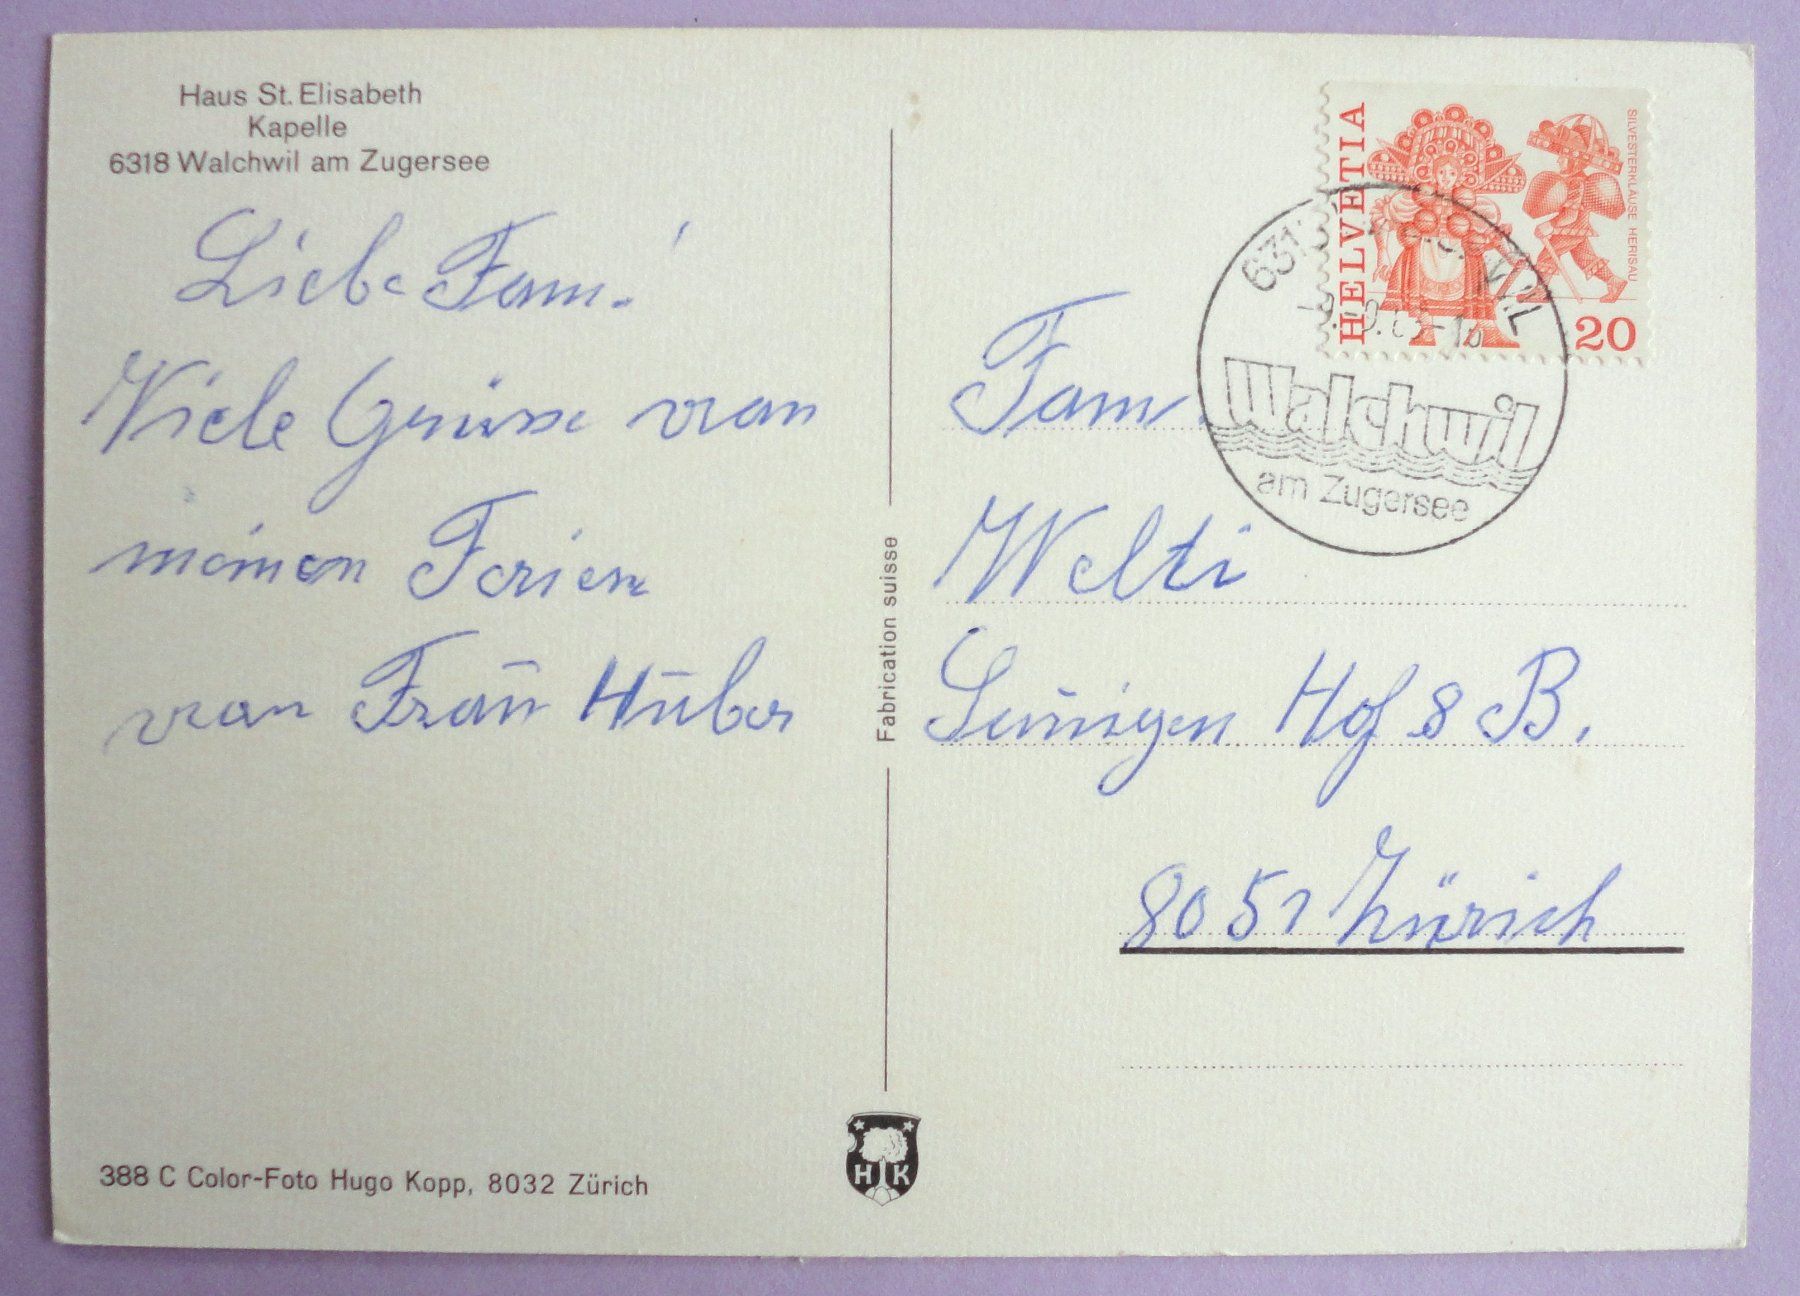 Haus St. Elisabeth
Kapelle
6318 Walchwil am Zugersee
Liebe Fam.!
Viele Grüsse von
meinen Ferien
von Frau Huber
388 C Color-Foto Hugo Kopp, 8032 Zürich
Fabrication suisse
H K
HELVETIA
SILVESTERKLÄUSE HERISAU
20
Walchwil
am Zugersee
Fam.
Welti
Hof 8 B.
8051 Zürich